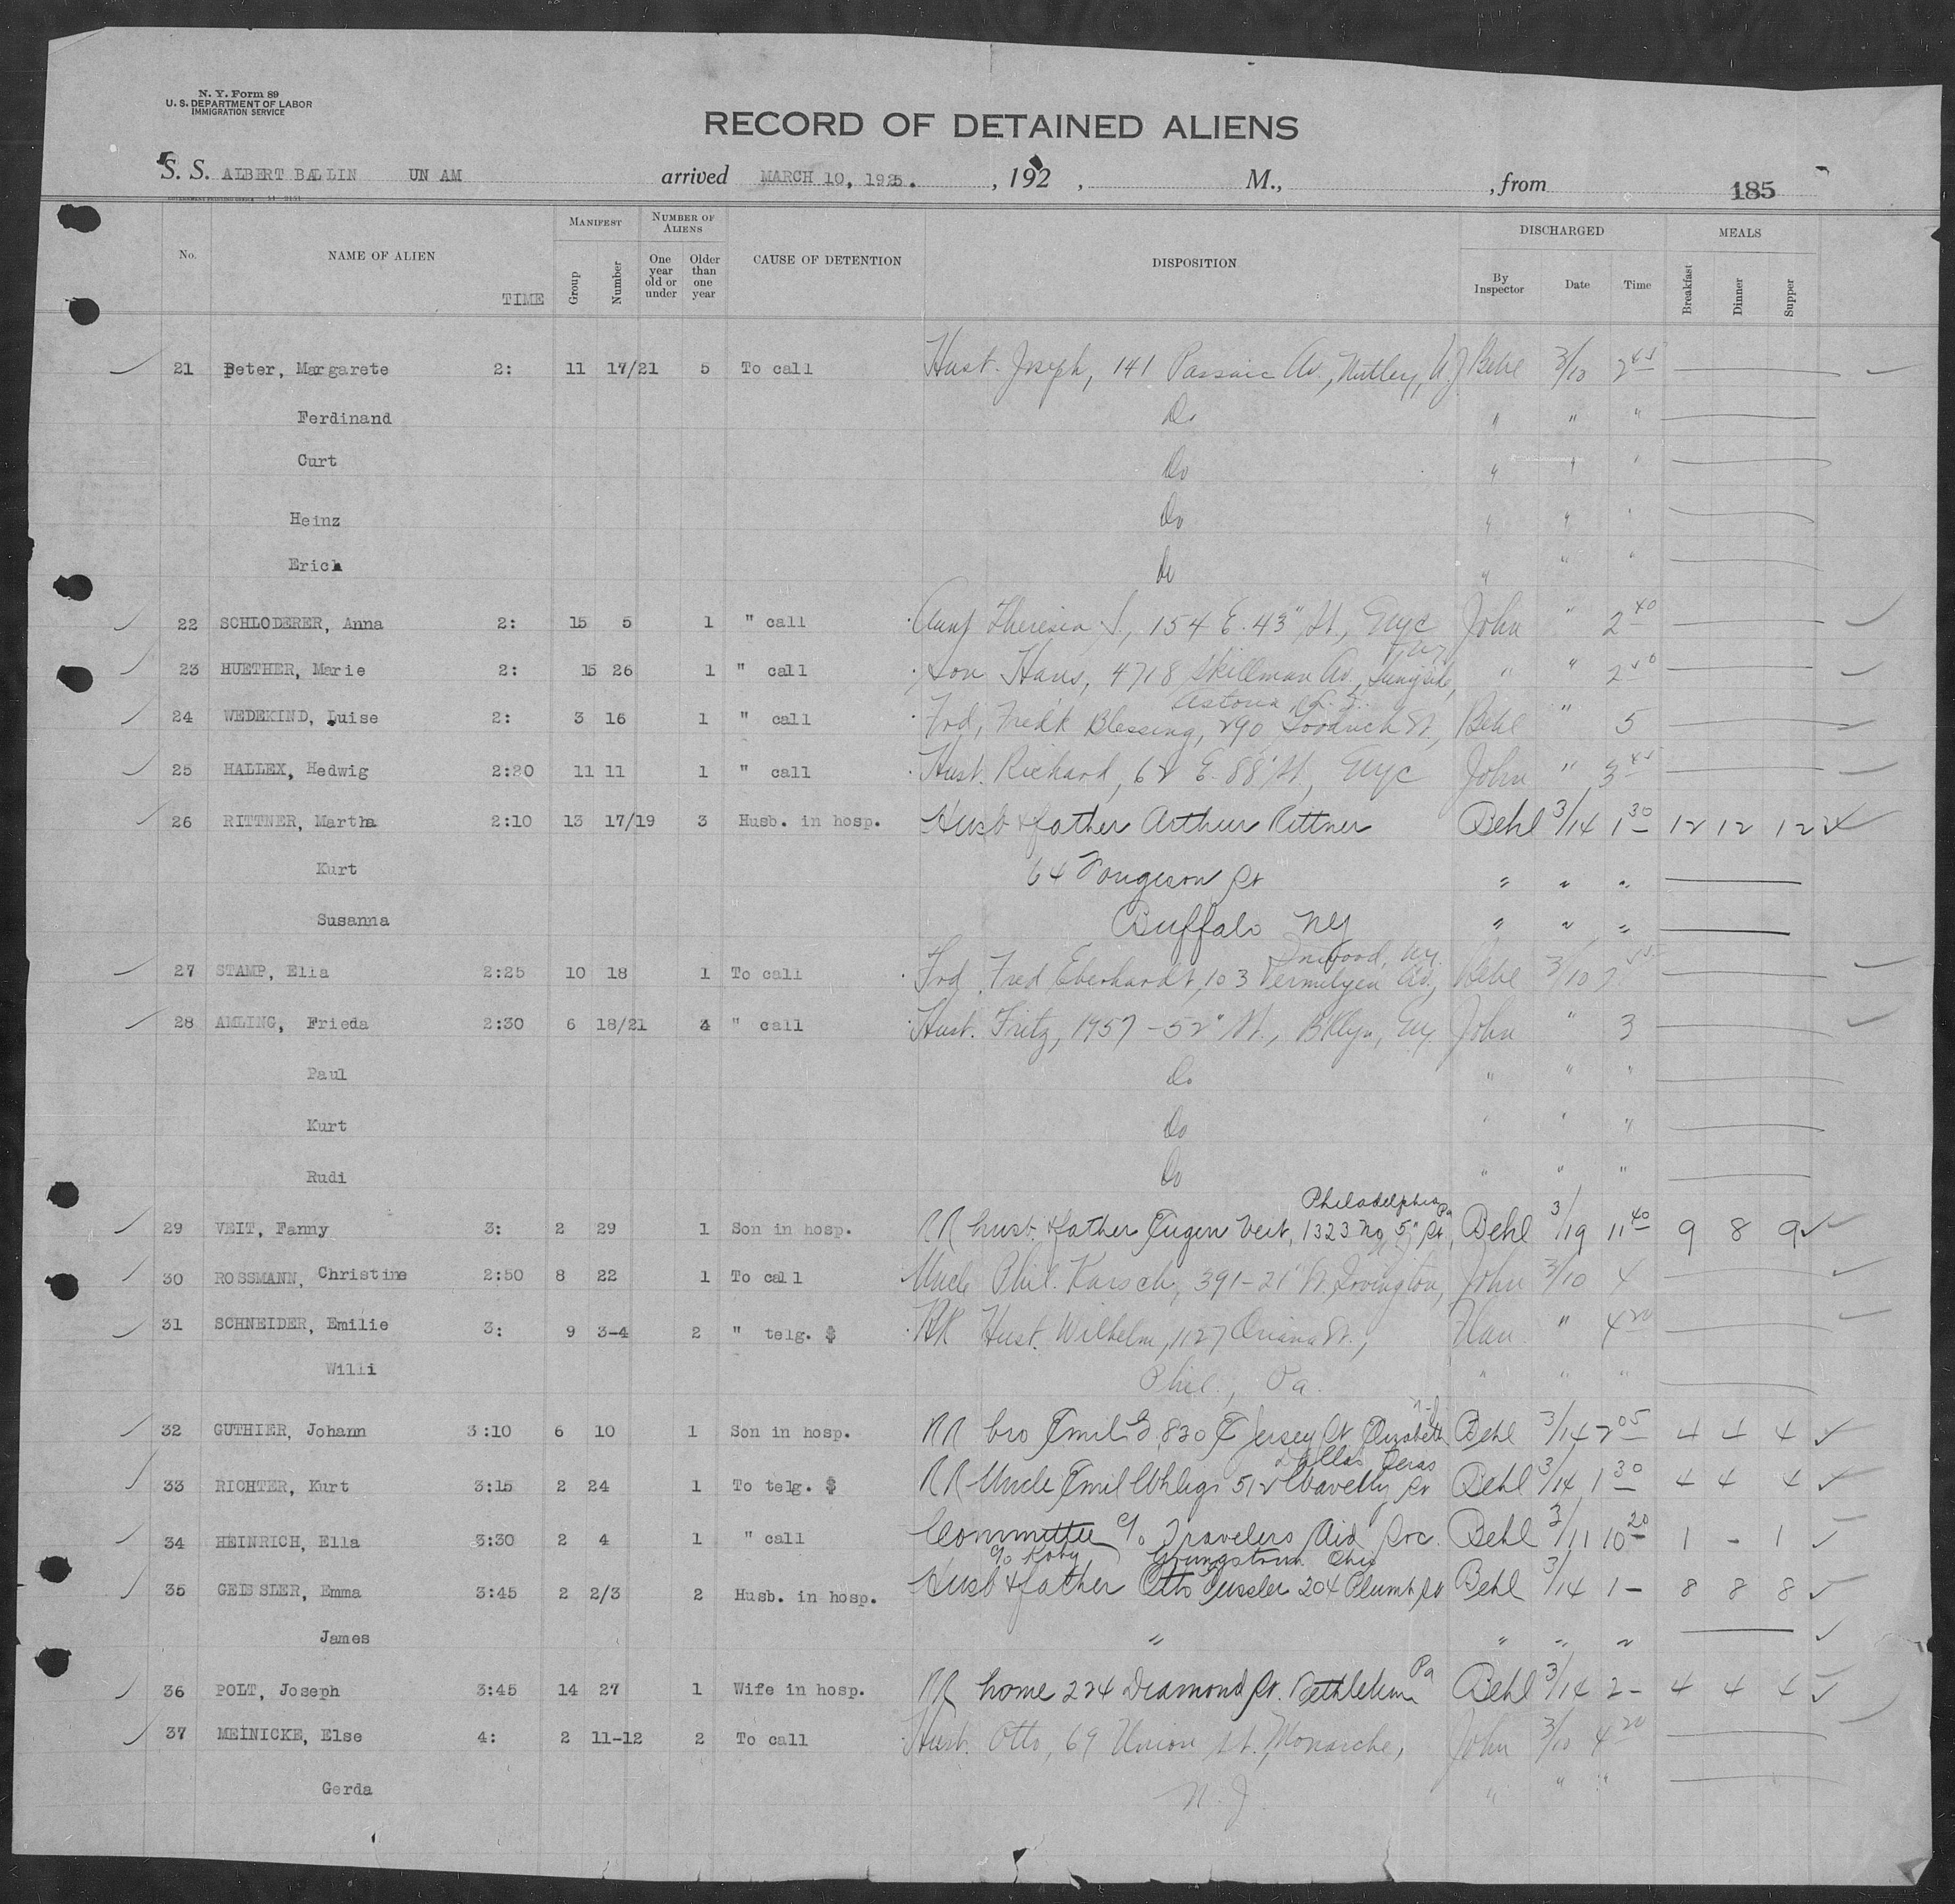 N. Y. Form 89
U. S. DEPARTMENT OF LABOR
IMMIGRATION SERVICE
RECORD OF DETAINED ALIENS
S. S. ALBERT BALLIN UN AM arrived MARCH 10, 1925. , 192 , M., , from 185
No. NAME OF ALIEN TIME MANIFEST Group Number NUMBER OF ALIENS One year old or under Older than one year CAUSE OF DETENTION DISPOSITION DISCHARGED By Inspector Date Time MEALS Breakfast Dinner Supper
21 Peter, Margarete 2: 11 17/21 5 To call Husb. Joseph, 141 Passaic Av., Nutley, NJ Behl 3/10 2 45
Ferdinand Do " " "
Curt Do " " "
Heinz Do " " "
Erich Do " " "
22 SCHLODERER, Anna 2: 15 5 1 " call Aunt Theresia S., 154 E. 43" St., NYC John " 2 40
23 HUETHER, Marie 2: 15 26 1 " call Son Hans, 4718 Skillman Av., Sunyside, " " 2 50
24 WEDEKIND, Luise 2: 3 16 1 " call Frd, Fredk Blessing, 290 Goodrich St, Astoria, L.I. Behl " 5
25 HALLEX, Hedwig 2:20 11 11 1 " call Husb. Richard, 62 E. 88" St., NYC John " 3 45
26 RITTNER, Martha 2:10 13 17/19 3 Husb. in hosp. Husb & father Arthur Rittner Behl 3/14 1 30 12 12 12
Kurt 64 St " " "
Susanna Buffalo NY " " "
27 STAMP, Ella 2:25 10 18 1 To call Frd Fred Eberhardt, 103 Vermilyea Av., Inwood, NY. Behl 3/10
28 AMLING, Frieda 2:30 6 18/21 4 " call Husb. Fritz, 1957 - 52" St., Bklyn, NY John " 3
Paul Do " " "
Kurt Do " " "
Rudi Do " " "
29 VEIT, Fanny 3: 2 29 1 Son in hosp. RR husb & father Eugen Veit, 1323 No 5" St, Philadelphia Pa Behl 3/19 11 40 9 8 9
30 ROSSMANN, Christine 2:50 8 22 1 To call Uncle Phil. Karsch, 391-21" St. Irvington, John 3/10 4
31 SCHNEIDER, Emilie 3: 9 3-4 2 " telg. $ RR Husb. Wilhelm, 1127 Oriana St., " 4 20
Willi Phil., Pa. " " "
32 GUTHIER, Johann 3:10 6 10 1 Son in hosp. RR bro Emil G, 830 E Jersey St Elizabeth N.J. Behl 3/14 2 05 4 4 4
33 RICHTER, Kurt 3:15 2 24 1 To telg. $ RR Uncle Emil 512 St Dallas Texas Behl 3/14 1 30 4 4 4
34 HEINRICH, Ella 3:30 2 4 1 " call Committee c/o Travelers Aid Soc. Behl 3/11 10 20 1 - 1
35 GEISSLER, Emma 3:45 2 2/3 2 Husb. in hosp. Husb & father Otto Geissler 204 Plum St Youngstown Ohio Behl 3/14 1 - 8 8 8
James " " " "
36 POLT, Joseph 3:45 14 27 1 Wife in hosp. RR home 224 Diamond St. Bethlehem Pa Behl 3/14 2 - 4 4 4
37 MEINICKE, Else 4: 2 11-12 2 To call Husb. Otto, 69 Union St. Monarche, John 3/10 4 20
Gerda N. J. " " "